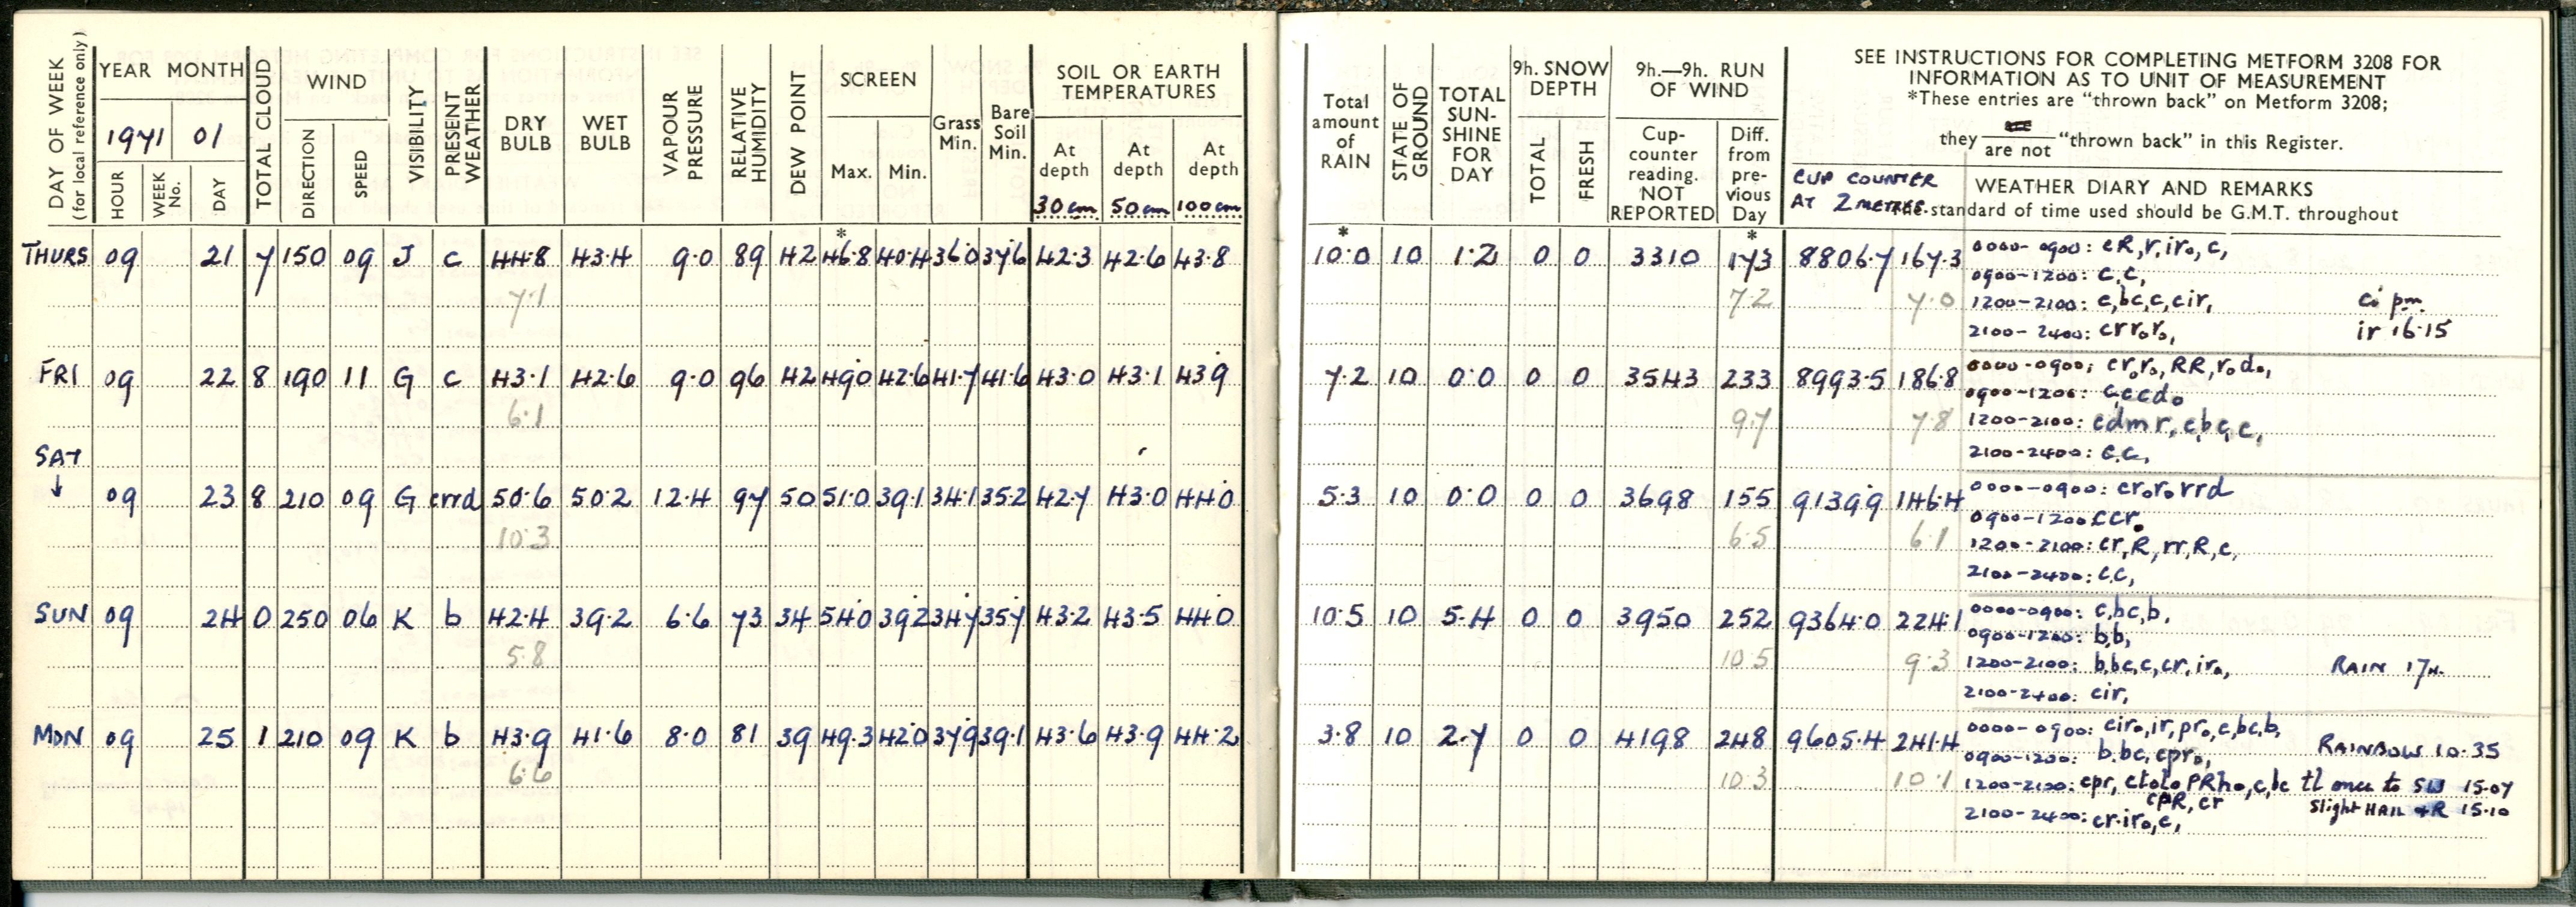 DAY OF WEEK (for local reference only) YEAR MONTH TOTAL CLOUD WIND VISIBILITY PRESENT WEATHER DRY BULB WET BULB VAPOUR PRESSURE RELATIVE HUMIDITY DEW POINT SCREEN Grass Min. Bare Soil Min. SOIL OR EARTH TEMPERATURES
1971 01
HOUR WEEK No. DAY DIRECTION SPEED Max. Min. At depth At depth At depth
30 cm 50 cm 100 cm
THURS 09 21 7 150 09 J c 44.8 43.4 9.0 89 42 46.8 40.4 36.0 37.6 42.3 42.6 43.8
7.1
FRI 09 22 8 190 11 G c 43.1 42.6 9.0 96 42 49.0 42.6 41.7 41.6 43.0 43.1 43.9
6.1
SAT
↓ 09 23 8 210 09 G crrd 50.6 50.2 12.4 97 50 51.0 39.1 34.1 35.2 42.7 43.0 44.0
10.3
SUN 09 24 0 250 06 K b 42.4 39.2 6.6 73 34 54.0 39.2 34.7 35.7 43.2 43.5 44.0
5.8
MON 09 25 1 210 09 K b 43.9 41.6 8.0 81 39 49.3 42.0 37.9 39.1 43.6 43.9 44.2
6.6
Total amount of RAIN STATE OF GROUND TOTAL SUN-SHINE FOR DAY 9h. SNOW DEPTH 9h.—9h. RUN OF WIND
TOTAL FRESH Cup-counter reading. NOT REPORTED Diff. from pre-vious Day
SEE INSTRUCTIONS FOR COMPLETING METFORM 3208 FOR
INFORMATION AS TO UNIT OF MEASUREMENT
*These entries are "thrown back" on Metform 3208;
they are / are not "thrown back" in this Register.
CUP COUNTER
AT 2 METRES
WEATHER DIARY AND REMARKS
standard of time used should be G.M.T. throughout
10.0 10 1.2 0 0 3310 173 8806.7 167.3 0000-0900: cR,r,iro,c,
0900-1200: c.c,
7.2 7.0 1200-2100: c,bc,c,cir, Ci pm.
2100-2400: crroro, ir 16.15
7.2 10 0.0 0 0 3543 233 8993.5 186.8 0000-0900; croro, RR, rodo,
0900-1200: c,ccdo
9.7 7.8 1200-2100: cdmr, c,bc,c,
2100-2400: c.c,
5.3 10 0.0 0 0 3698 155 9139.9 146.4 0000-0900: crororrd
0900-1200 ccro
6.5 6.1 1200-2100: cr,R,rr,R,c,
2100-2400: c.c,
10.5 10 5.4 0 0 3950 252 9364.0 224.1 0000-0900: c,bc,b,
0900-1200: b,b,
10.5 9.3 1200-2100: b,bc,c,cr,iro, RAIN 17H.
2100-2400: cir,
3.8 10 2.7 0 0 4198 248 9605.4 241.4 0000-0900: ciro,ir,pro,c,bc,b,
0900-1200: b.bc,cpro, RAINBOW 10.35
10.3 10.1 1200-2100: cpr, PRho,c,bc tl once to SW 15.07
cPR, cr Slight HAIL +R 15.10
2100-2400: cr.iro,c,